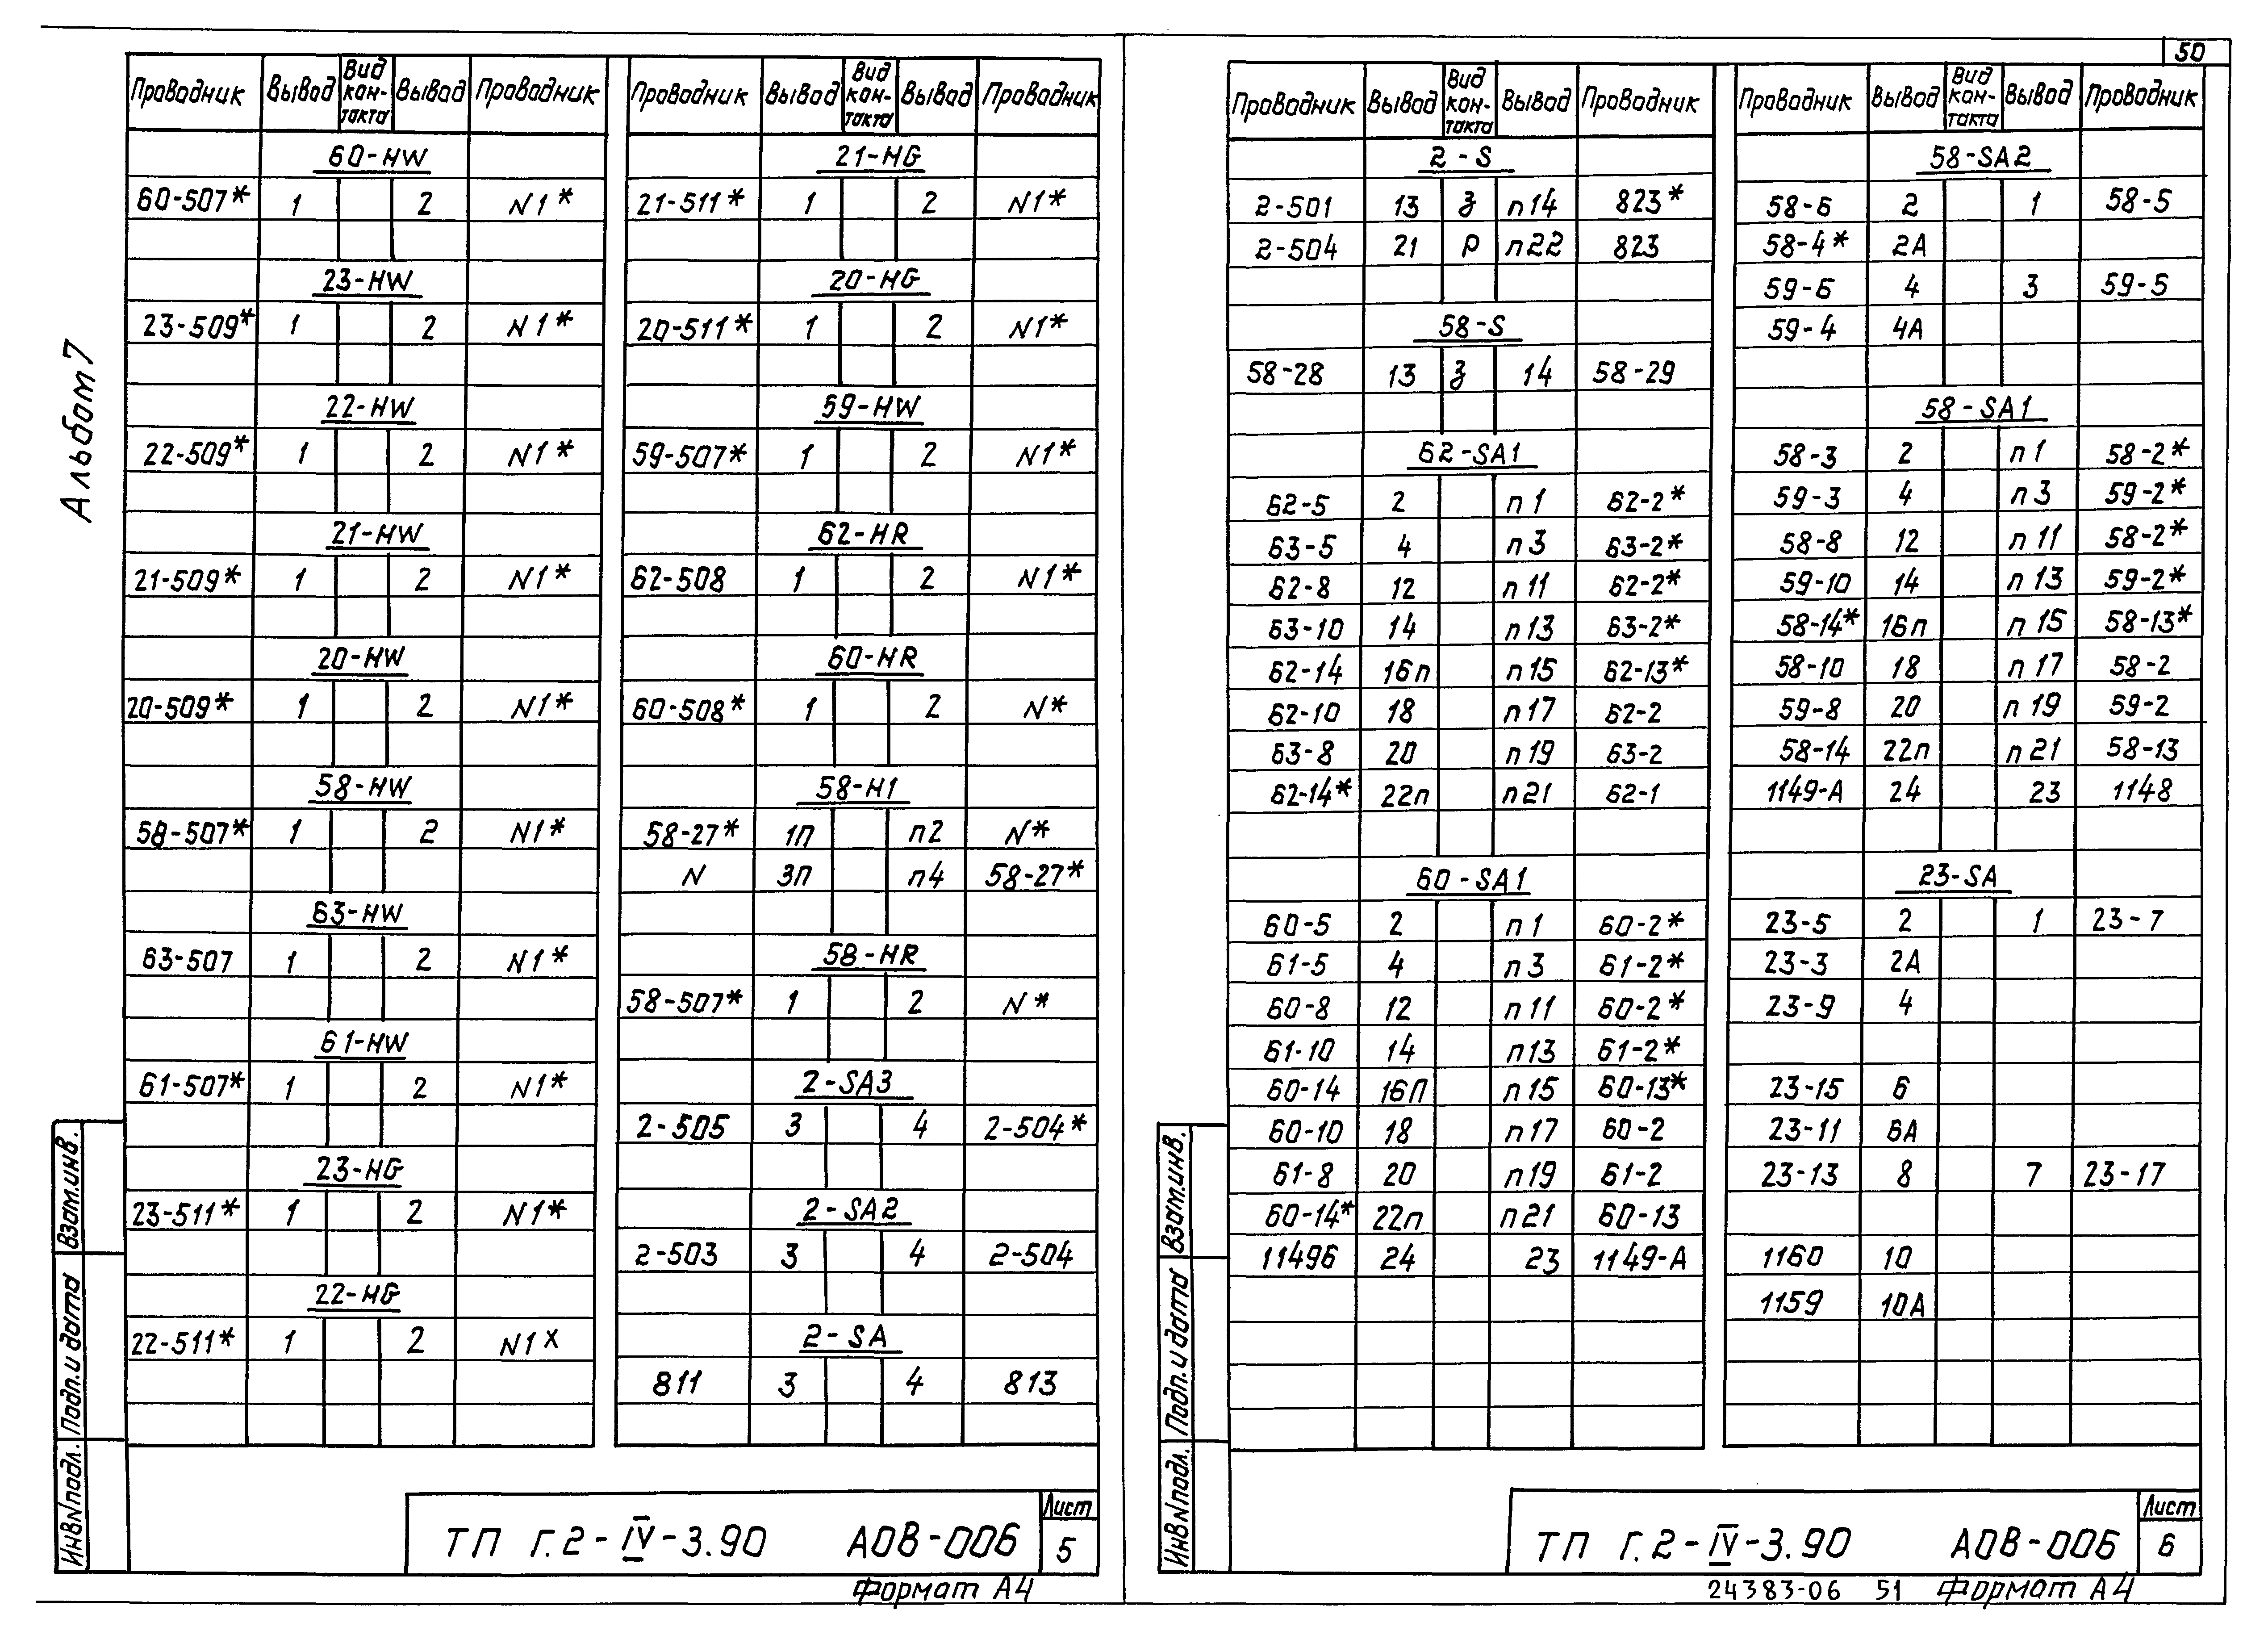 50
Альбом 7
Проводник Вывод Вид кон-такта Вывод Проводник
60-HW
60-507* 1 2 N1*
23-HW
23-509* 1 2 N1*
22-HW
22-509* 1 2 N1*
21-HW
21-509* 1 2 N1*
20-HW
20-509* 1 2 N1*
58-HW
58-507* 1 2 N1*
63-HW
63-507 1 2 N1*
61-HW
61-507* 1 2 N1*
23-HG
23-511* 1 2 N1*
22-HG
22-511* 1 2 N1x
Проводник Вывод Вид кон-такта Вывод Проводник
21-HG
21-511* 1 2 N1*
20-HG
20-511* 1 2 N1*
59-HW
59-507* 1 2 N1*
62-HR
62-508 1 2 N1*
60-HR
60-508* 1 2 N*
58-H1
58-27* 1П п2 N*
N 3П п4 58-27*
58-HR
58-507* 1 2 N*
2-SA3
2-505 3 4 2-504*
2-SA2
2-503 3 4 2-504
2-SA
811 3 4 813
Взам.инв.
Подп.и дата
Инв N подл.
ТП Г.2-IV-3.90 АОВ-006
Лист
5
Формат А4
Проводник Вывод Вид кон-такта Вывод Проводник
2-S
2-501 13 з п14 823*
2-504 21 р п22 823
58-S
58-28 13 з 14 58-29
62-SA1
62-5 2 п1 62-2*
63-5 4 п3 63-2*
62-8 12 п11 62-2*
63-10 14 п13 63-2*
62-14 16п п15 62-13*
62-10 18 п17 62-2
63-8 20 п19 63-2
62-14* 22п п21 62-1
60-SA1
60-5 2 п1 60-2*
61-5 4 п3 61-2*
60-8 12 п11 60-2*
61-10 14 п13 61-2*
60-14 16П п15 60-13*
60-10 18 п17 60-2
61-8 20 п19 61-2
60-14* 22п п21 60-13
1149б 24 23 1149-А
Проводник Вывод Вид кон-такта Вывод Проводник
58-SA2
58-6 2 1 58-5
58-4* 2А
59-6 4 3 59-5
59-4 4А
58-SA1
58-3 2 п1 58-2*
59-3 4 п3 59-2*
58-8 12 п11 58-2*
59-10 14 п13 59-2*
58-14* 16п п15 58-13*
58-10 18 п17 58-2
59-8 20 п19 59-2
58-14 22п п21 58-13
1149-А 24 23 1148
23-SA
23-5 2 1 23-7
23-3 2А
23-9 4
23-15 6
23-11 6А
23-13 8 7 23-17
1160 10
1159 10А
Взам.инв.
Подп.и дата
Инв N подл.
ТП Г.2-IV-3.90 АОВ-006
Лист
6
24383-06 51 Формат А4